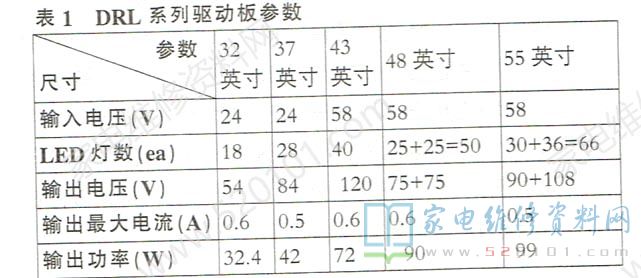 表 1 DRL 系列驱动板参数
参数 尺寸 32英寸 37英寸 43英寸 48 英寸 55 英寸
输入电压(V) 24 24 58 58 58
LED 灯数(ea) 18 28 40 25+25=50 30+36=66
输出电压(V) 54 84 120 75+75 90+108
输出最大电流(A) 0.6 0.5 0.6 0.6 0.5
输出功率(W) 32.4 42 72 90 99
家电维修资料网
www.520101.com